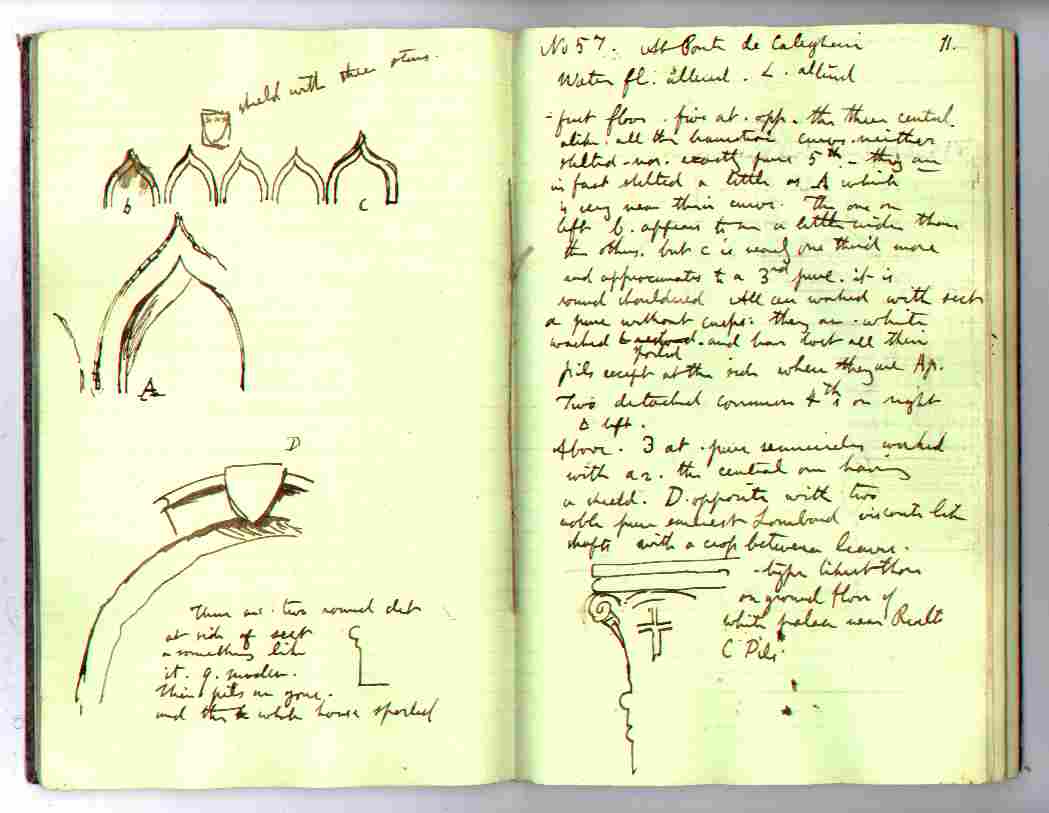 shield with three stars.
b
c
A
D
There are two round
at side of sect
a something like
it. q. modern.
Their pils are gone.
and the white house spoiled
No 57. At Ponte de
11.
Water fl. altered. L. altered
- first floor. five at. opp. the three central
alike. all the transition curves. neither
stilted - nor. exactly pure 5th - they are
in fact stilted a little as A which
is very near their curve. The one on
left b. appears to me a little wider than
the others. but c is nearly one third more
and approximates to a 3rd pure. it is
round shouldered All are worked with sect
a pure without cusps. they are white
washed & and have lost all their
spoiled
pils except at the side where they are Ap.
Two detached common 4th s on right
& left.
Above. 3 at. pure semicircles worked
with a 2. the central one having
a shield. D. opposite with two
noble pure earliest Lombard like
shafts with a cross between leaves.
- type likest those
on ground floor of
white palace near Rialto
C Pils.